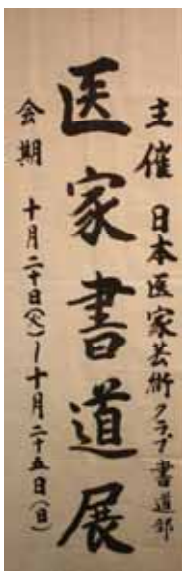 主催 日本医家芸術クラブ書道部
医家書道展
会期 十月二十日(火)〜十月二十五日(日)